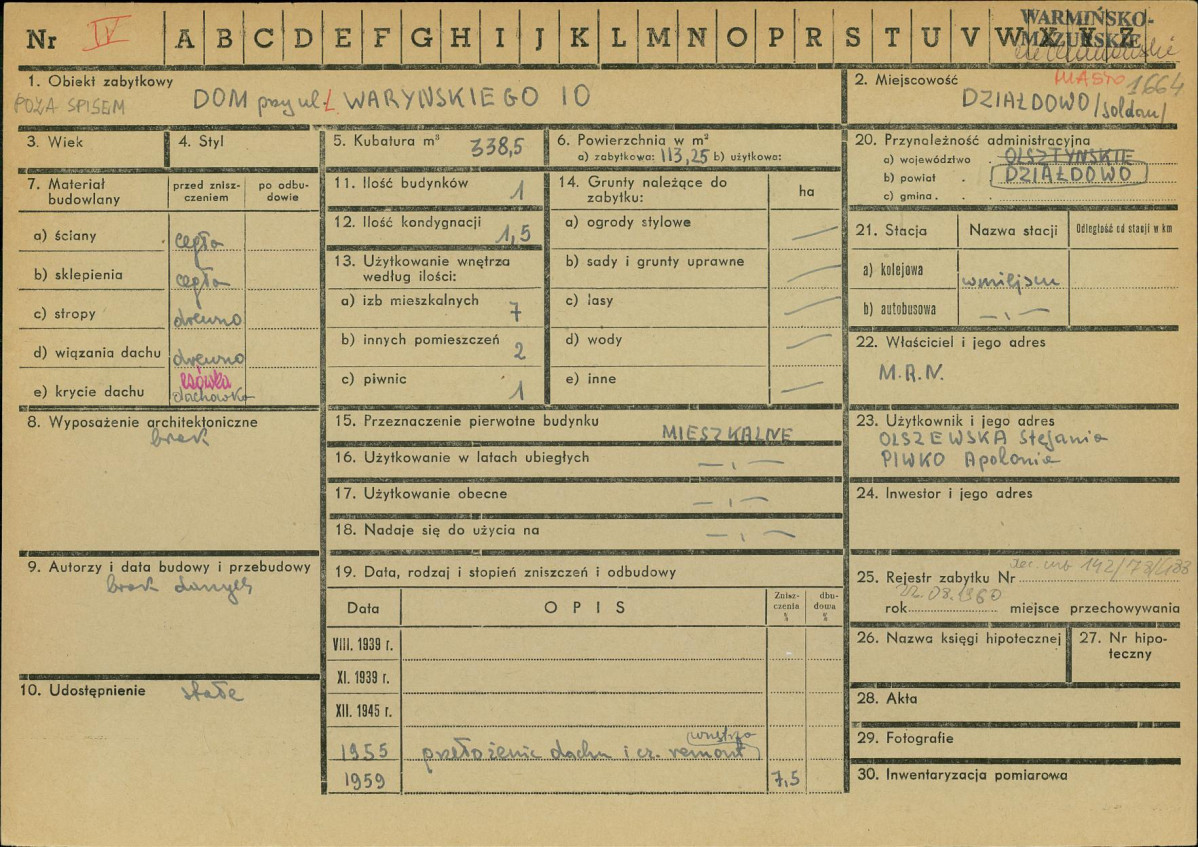 Nr IV A B C D E F G H I J K L M N O P R S T U V W X Y Z
WARMIŃSKO-
MAZURSKIE
1. Obiekt zabytkowy
POZA SPISEM
DOM przy ul. Ł. WARYNSKIEGO 10
2. Miejscowość
MIASTO 1664
DZIAŁDOWO /soldau/
3. Wiek
4. Styl
5. Kubatura m³ 338,5
6. Powierzchnia w m²
a) zabytkowa: 113,25 b) użytkowa:
20. Przynależność administracyjna
a) województwo . OLSZTYNSKIE
b) powiat . DZIAŁDOWO
c) gmina . .
7. Materiał budowlany
przed znisz-
czeniem
po odbu-
dowie
a) ściany cegła
b) sklepienia cegła
c) stropy drewno
d) wiązania dachu drewno
esówka
e) krycie dachu dachowka
11. Ilość budynków 1
12. Ilość kondygnacji 1,5
13. Użytkowanie wnętrza
według ilości:
a) izb mieszkalnych 7
b) innych pomieszczeń 2
c) piwnic 1
14. Grunty należące do
zabytku:
ha
a) ogrody stylowe —
b) sady i grunty uprawne —
c) lasy —
d) wody —
e) inne —
21. Stacja
Nazwa stacji
Odległość od stacji w km
a) kolejowa w miejscu
b) autobusowa — „ —
22. Właściciel i jego adres
M.R.N.
8. Wyposażenie architektoniczne
brak
15. Przeznaczenie pierwotne budynku
MIESZKALNE
16. Użytkowanie w latach ubiegłych — „ —
17. Użytkowanie obecne — „ —
18. Nadaje się do użycia na — „ —
23. Użytkownik i jego adres
OLSZEWSKA Stefania
PIWKO Apolonia
24. Inwestor i jego adres
9. Autorzy i data budowy i przebudowy
brak danych
10. Udostępnienie stałe
19. Data, rodzaj i stopień zniszczeń i odbudowy
Data
OPIS
Znisz-
czenia
%
dbu-
dowa
%
VIII. 1939 r.
XI. 1939 r.
XII. 1945 r.
wnętrza
1955 przełożenie dachu i cz. remont
1959 7,5
25. Rejestr zabytku Nr
rok 22.08.1960 miejsce przechowywania
26. Nazwa księgi hipotecznej
27. Nr hipo-
teczny
28. Akta
29. Fotografie
30. Inwentaryzacja pomiarowa